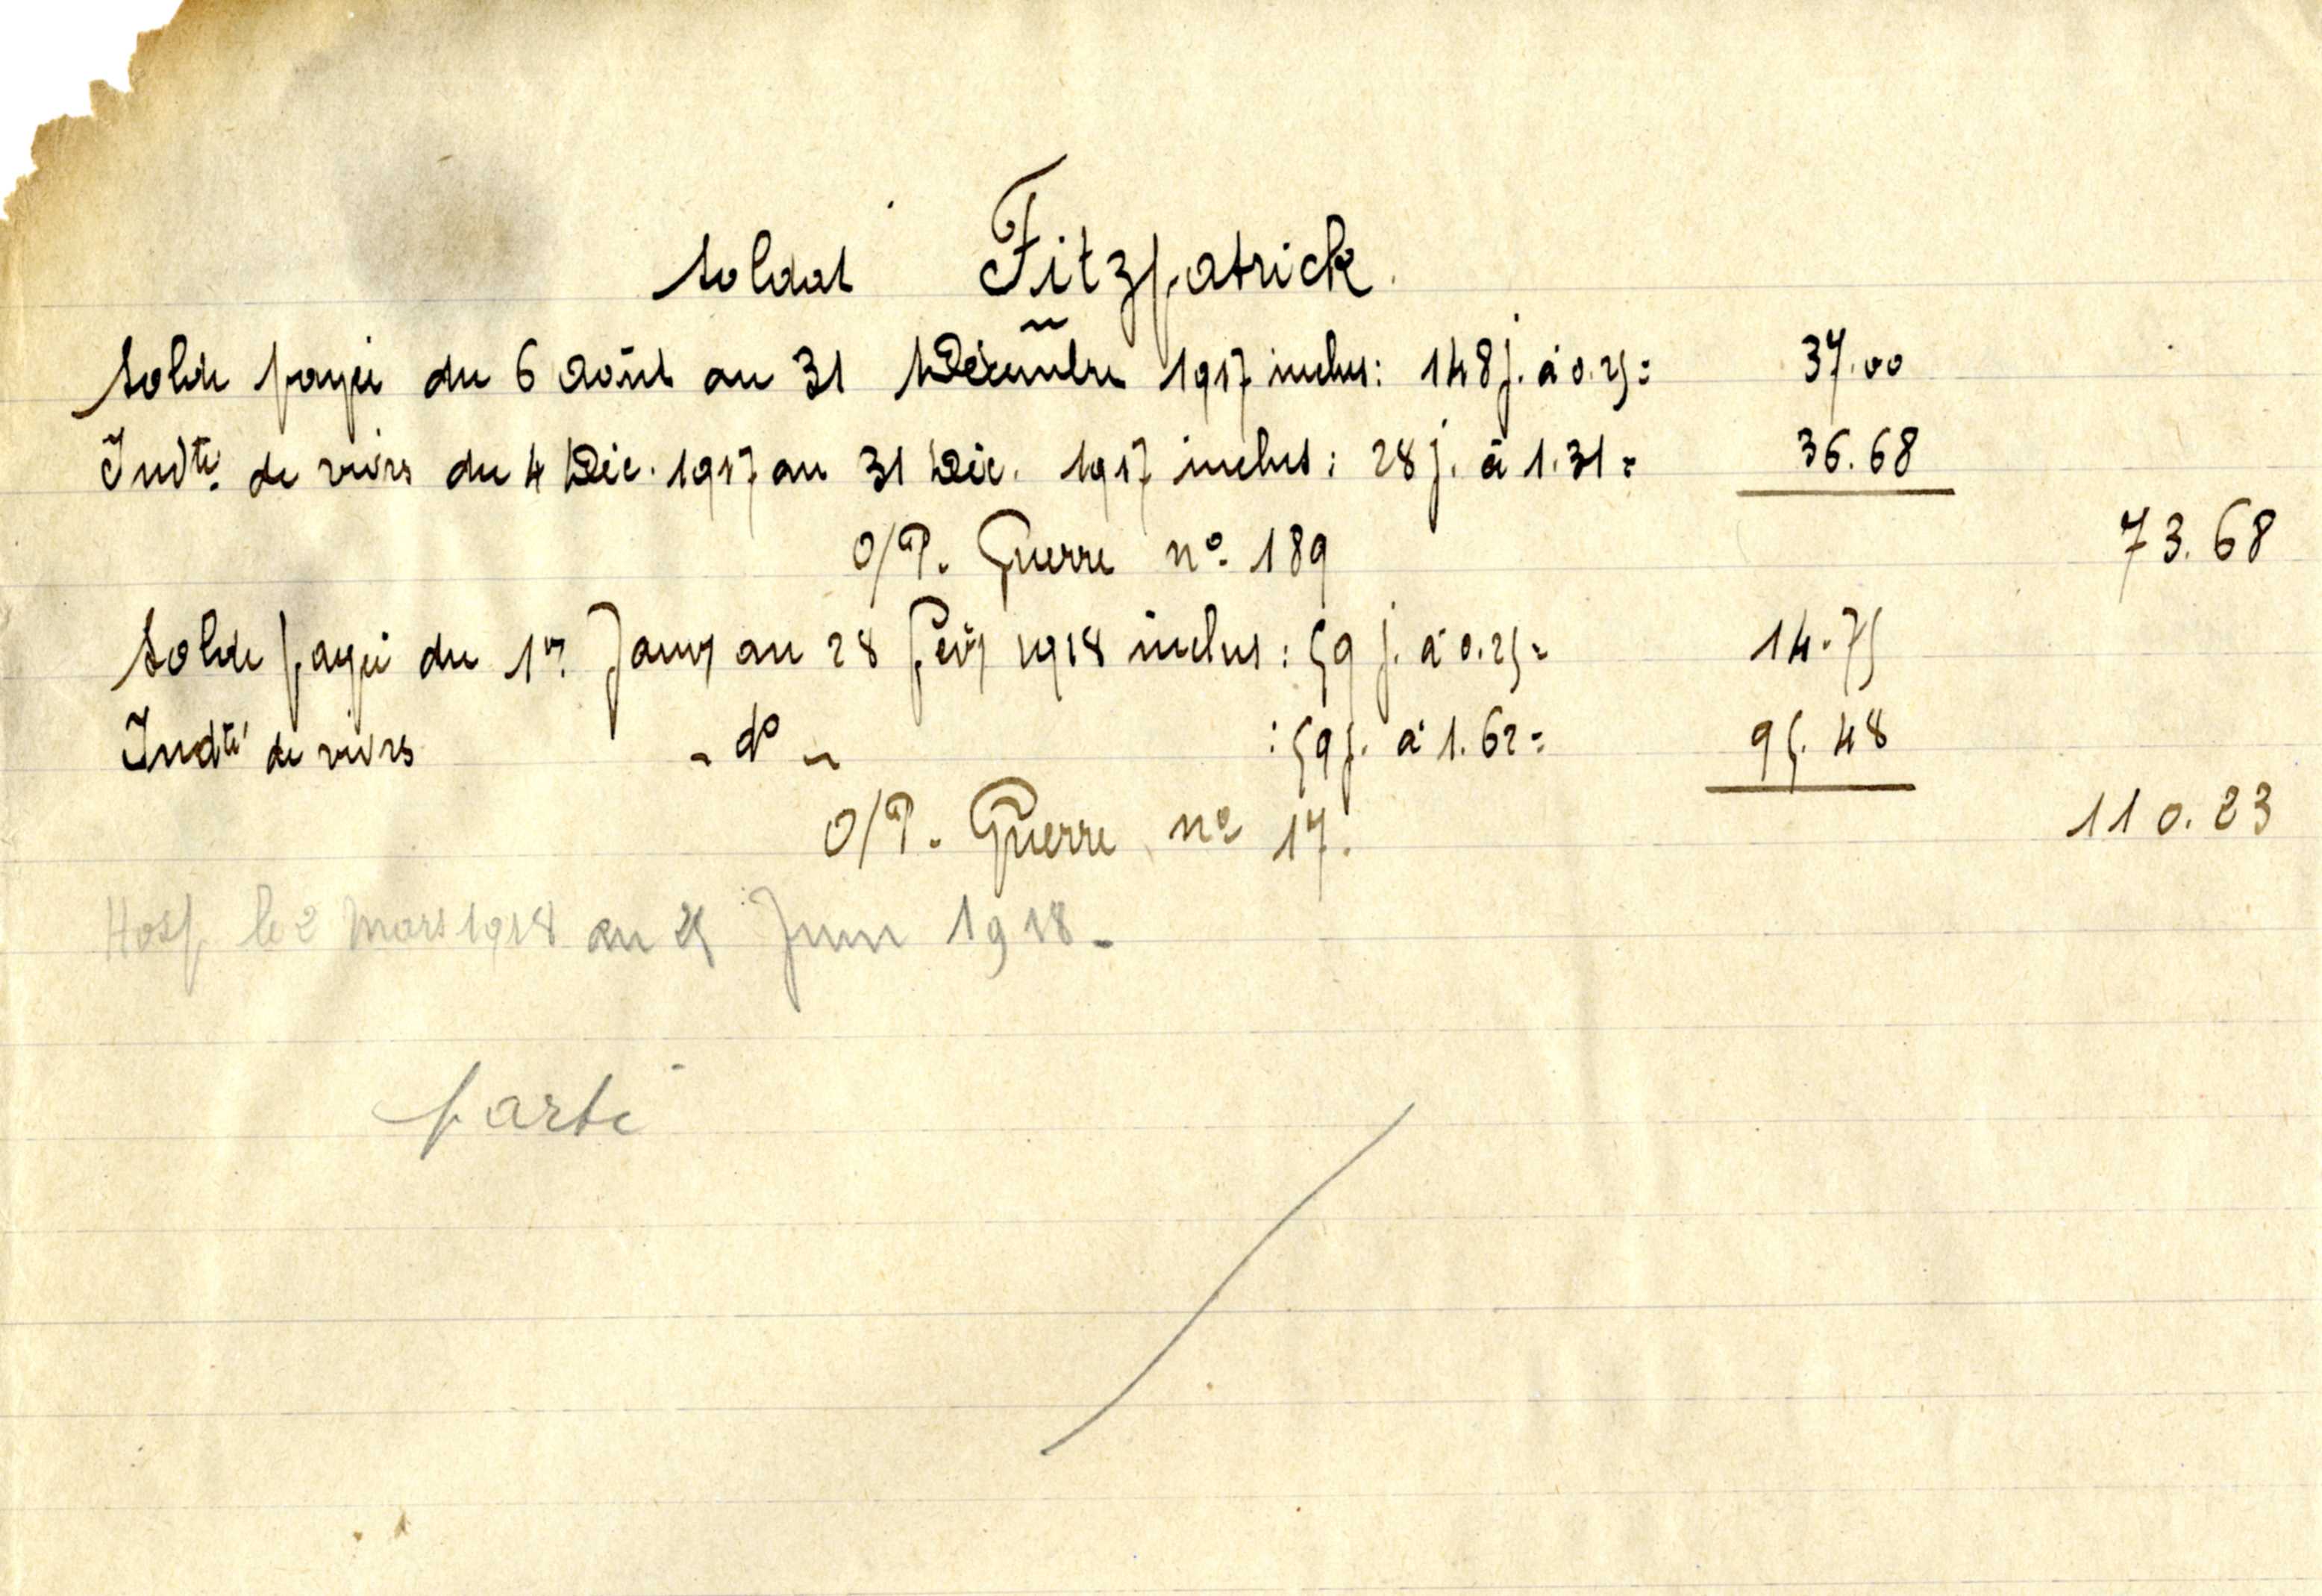 Soldat Fitzpatrick
Solde payée du 6 Août au 31 Décembre 1917 inclus: 148 j. à 0.25= 37.00
Indté. de vivres du 4 Déc. 1917 au 31 Déc. 1917 inclus: 28 j. à 1.31= 36.68
73.68
O/P. Guerre nº 189
Solde payée du 1er. Janvr au 28 Févr 1918 inclus: 59 j. à 0.25= 14.75
Indté de vivres - dº - : 59 j. à 1.62= 95.48
110.23
O/P. Guerre nº 17.
Hosp. le 2 Mars 1918 au 25 Juin 1918.-
parti